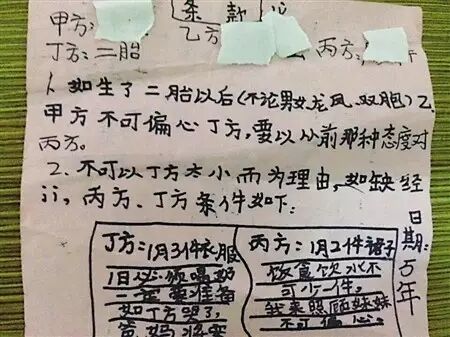 条款
甲方:
乙方
丙方:
丁方:二胎
1、如生了二胎以后(不论男女龙凤、双胞)乙
甲方不可偏心丁方,要以从前那种态度对
丙方。
2、不可以丁方太小而为理由,如缺经
济,丙方、丁方条件如下:
丁方:1月3件衣服
1日必须喝奶
一定要准备
如丁方哭了,
爸妈将要
丙方:1月2件裙子
饭食饮水不
可少一件,
我来照顾妹妹
不可偏心。
日期:5年